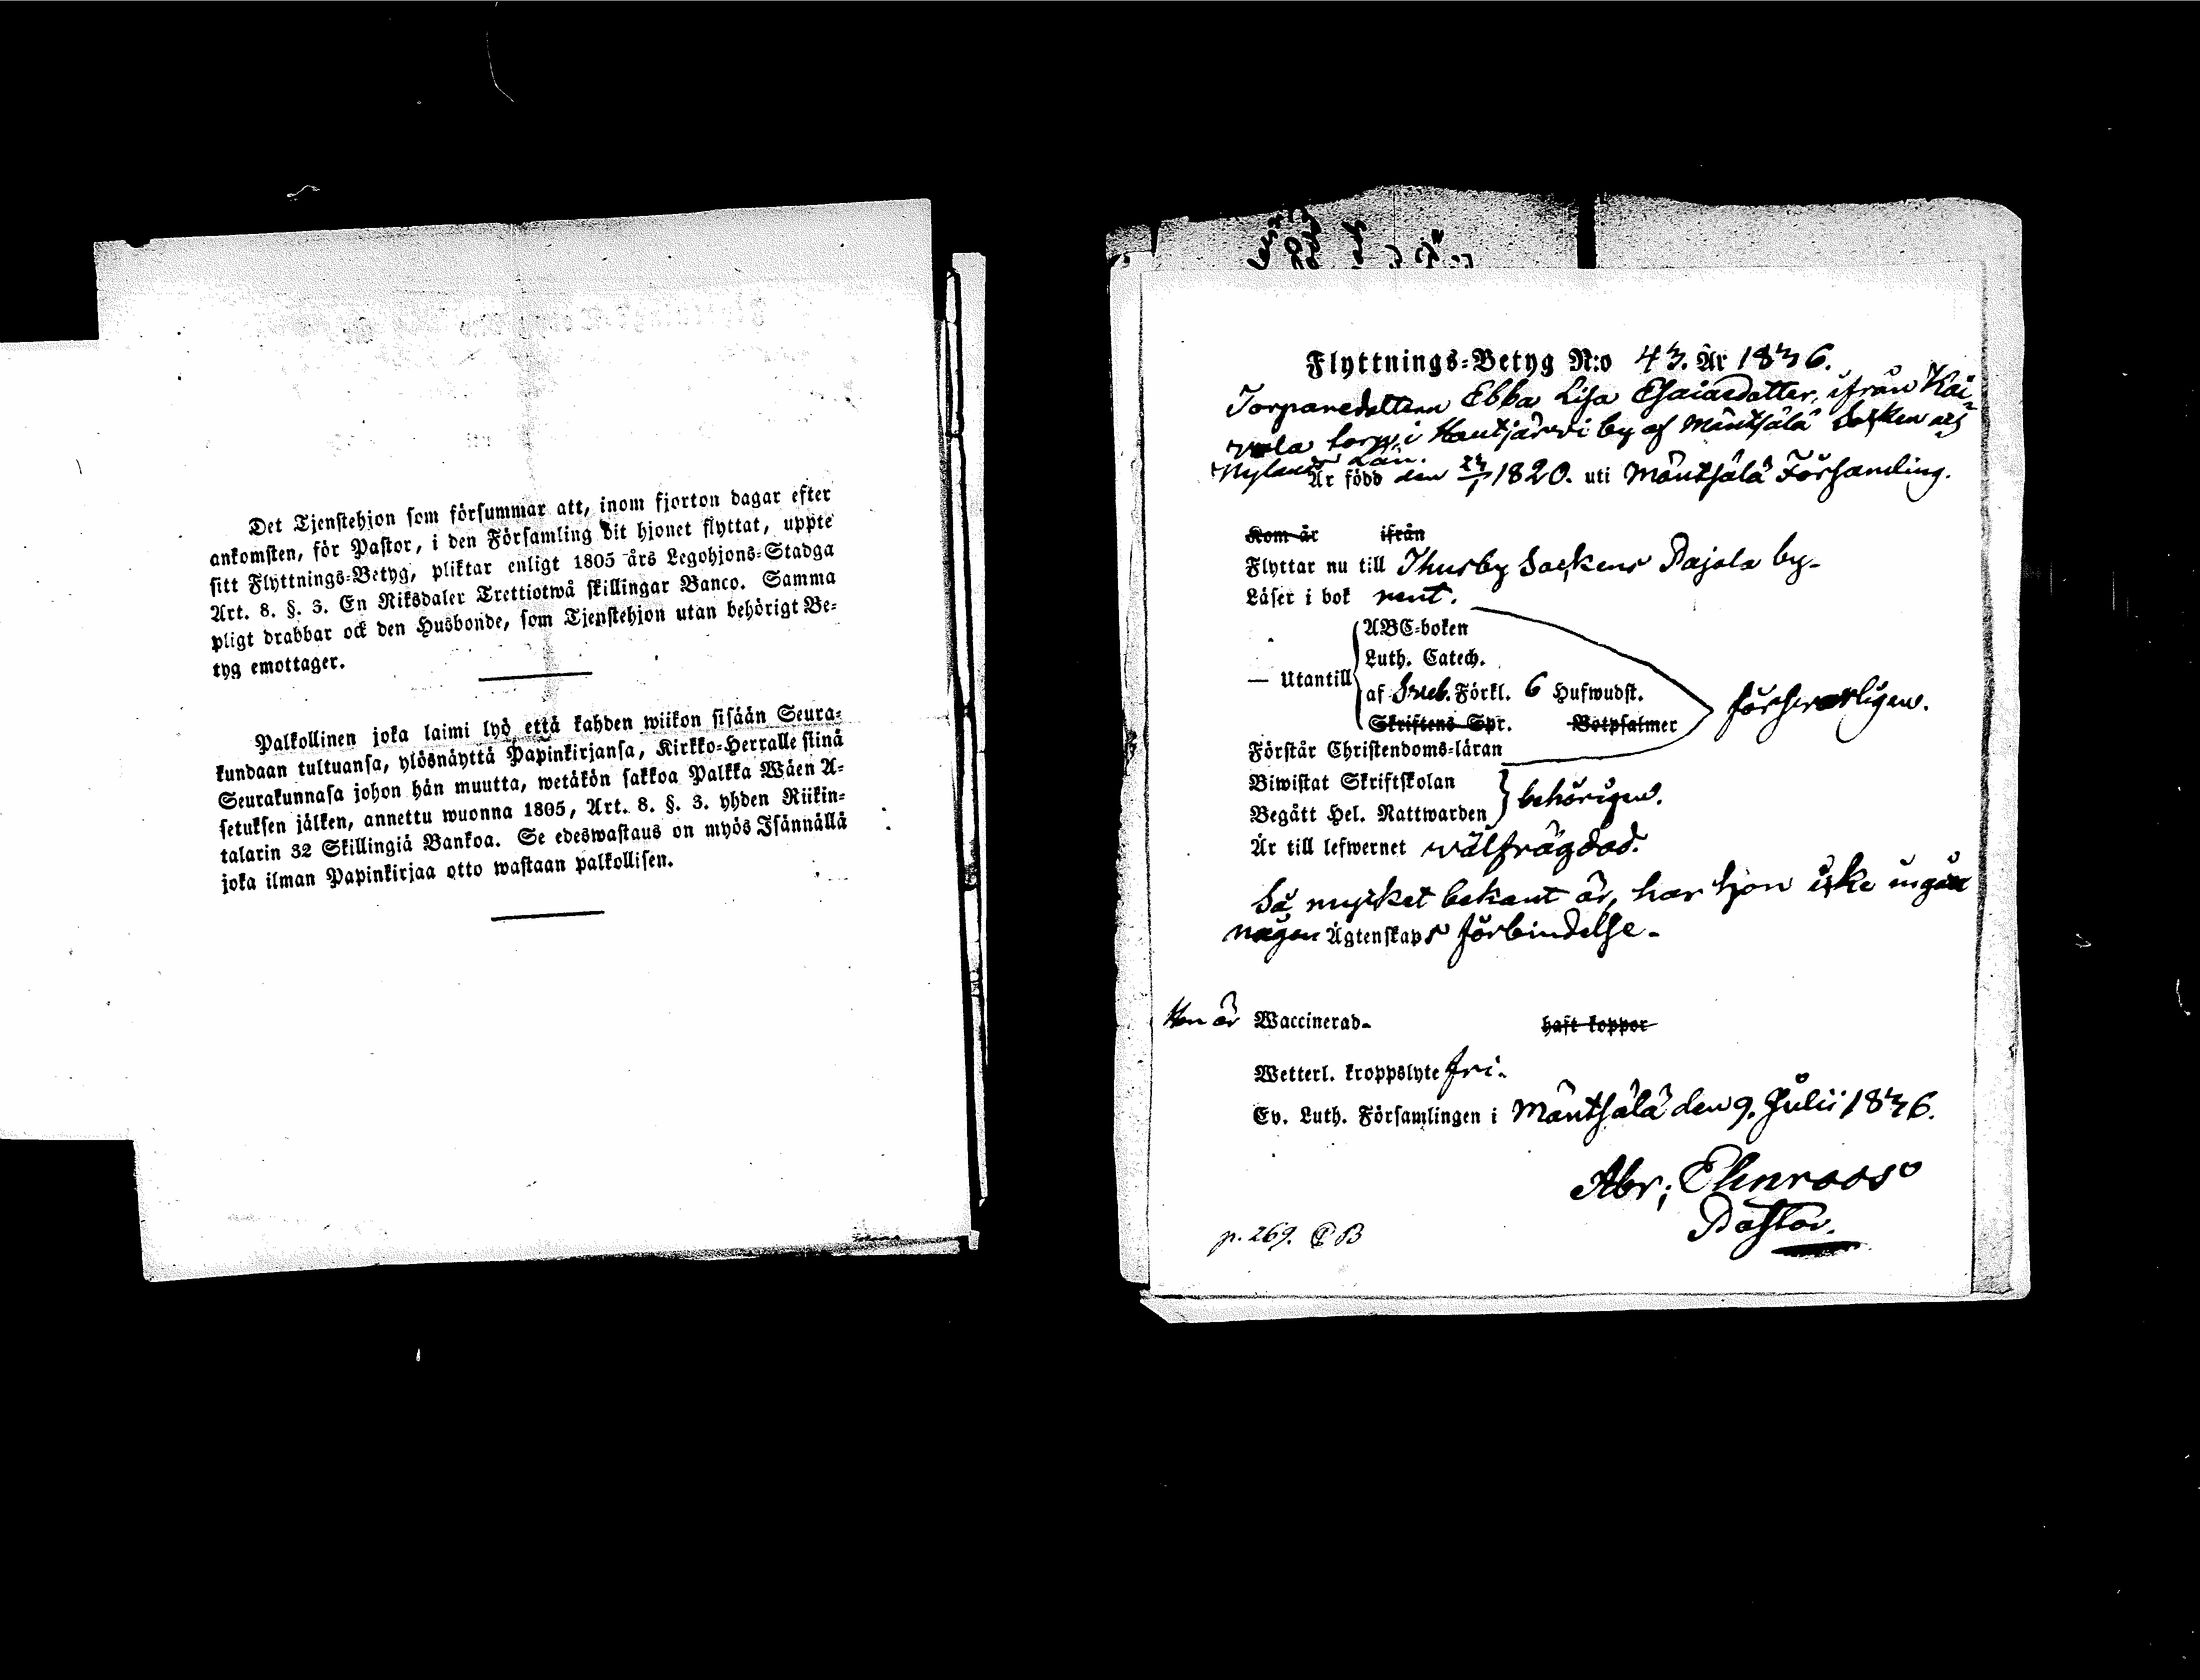 Det Tjenstehjon som försummar att, inom fjorton dagar efter
ankomsten, för Pastor, i den Församling dit hjonet flyttat, uppte
sitt Flyttnings-Betyg, pliktar enligt 1805 års Legohjons-Stadga
Art. 8. §. 3. En Riksdaler Trettiotwå skillingar Banco. Samma
pligt drabbar ock den Husbonde, som Tjenstehjon utan behörigt Be-
tyg emottager.
Palkollinen joka laimi lyö että kahden wiikon sisään Seura-
kundaan tultuansa, ylösnäyttä Papinkirjansa, Kirkko-Herralle siinä
Seurakunnasa johon hän muutta, wetäkön sakkoa Palkka Wäen A-
setuksen jälken, annettu wuonna 1805, Art. 8. §. 3. yhden Riikin-
talarin 32 Skillingiä Bankoa. Se edeswastaus on myös Isännällä
joka ilman Papinkirjaa otto wastaan palkollisen.
Flyttnings-Betyg N:o 43. År 1836.
Torparedottern Ebba Lisa Esaiasdotter, ifrån Kai-
vola torp i Hautjärvi by af Mäntsälä Socken och
Nylands Län.
Är född den 23/1 1820. uti Mäntsälä Församling.
Kom år ifrån
Flyttar nu till Thusby Sockens Pajala by.
Läser i bok rent.
ABC-boken
Luth. Catech.
— Utantill
af Sveb. Förkl. 6 Hufwudst.
försvarligen.
Skriftens Spr. Botpsalmer
Förstår Christendoms-läran
Biwistat Skriftskolan
behörigen.
Begått Hel. Nattwarden
Är till lefwernet wälfrägdad.
Så mycket bekant är, har hon icke ingått
någon Ägtenskaps förbindelse.
Hon är Waccinerad. haft koppor
Wetterl. kroppslyte fri.
Ev. Luth. Församlingen i Mäntsälä den 9. Julii 1836.
Abr; Ehnroos
Pastor.
p. 269. C B